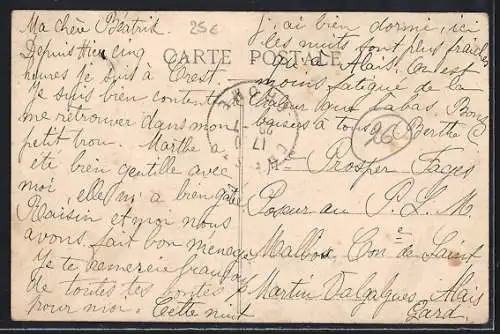 25€
CARTE POSTALE
Ma chère Béatrix
Depuis Hier cinq
heures je suis à Crest
Je suis bien contente
me retrouver dans mon
petit trou. Marthe a
été bien gentille avec
moi elle m'a bien gâtée
Raisin et moi nous
avons fait bon menage
Je te remercie beaucoup
de toutes tes bontés
pour moi. Cette nuit
j'ai bien dormi, ici
les nuits sont plus fraiches
qu'à Alais. On est
moins fatigué de la
chaleur que labas. Bons
baisers à tous Berthe
26
Prosper Fages
Poseur au P. L. M.
Malbos, Con e de Saint
Martin Valgalgues, Alais
Gard.